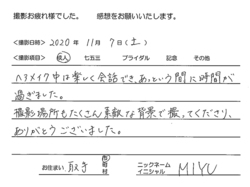 撮影お疲れ様でした。 感想をお願いいたします。
<撮影日時> 2020年 11月 7日(土)
<撮影項目> 成人 七五三 ブライダル 記念 その他
ヘアメイク中は楽しく会話でき、あっという間に時間が
過ぎました。
撮影場所もたくさん素敵な背景で撮ってくださり、
ありがとうございました。
お住まい 取手 市 ニックネーム イニシャル MIYU